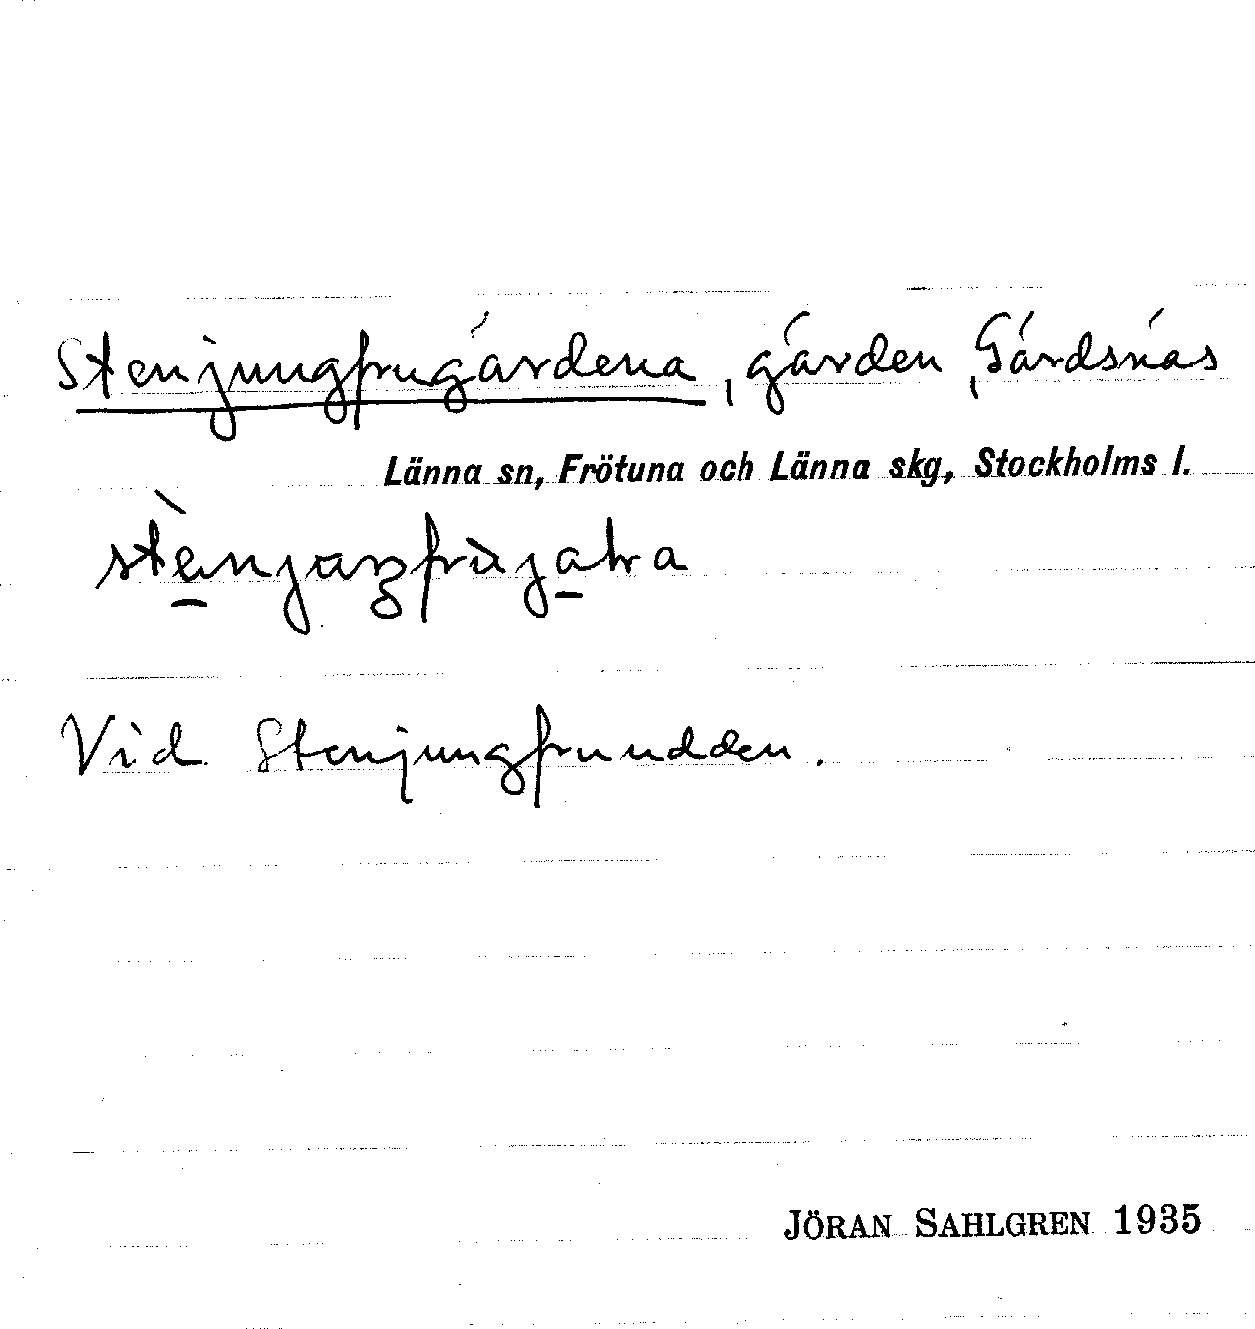 Stenjungfrugårdena, gärden, Gårdsnäs
Länna sn, Frötuna och Länna skg, Stockholms l.
Vid Stenjungfruudden.
JÖRAN SAHLGREN 1935